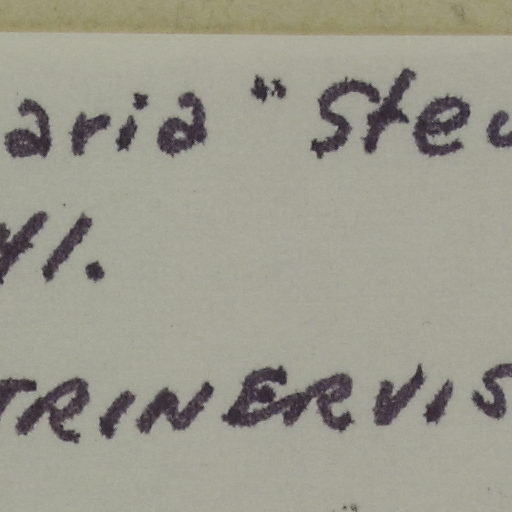 aria " Steu
yl.
TRINERVIS